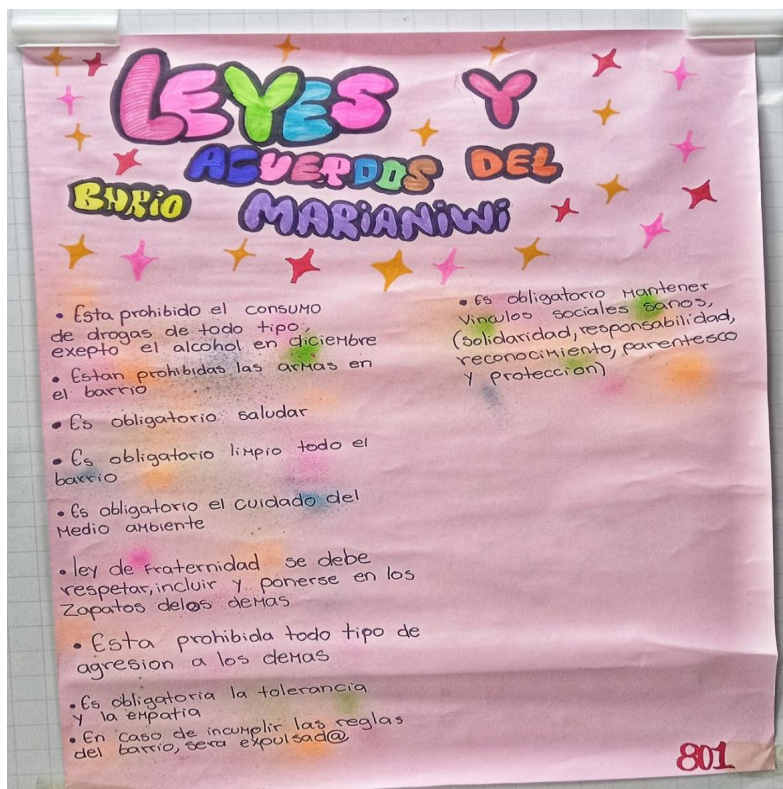 LEYES Y
ACUERDOS DEL
BARIO MARIANIWI
• Esta prohibido el consumo
de drogas de todo tipo,
exepto el alcohol en diciembre
• Estan prohibidas las armas en
el barrio
• Es obligatorio saludar
• Es obligatorio limpio todo el
barrio
• Es obligatorio el cuidado del
Medio ambiente
• ley de Fraternidad se debe
respetar, incluir y ponerse en los
Zapatos delos demas
• Esta prohibida todo tipo de
agresion a los demas
• Es obligatoria la tolerancia
y la empatia
• En caso de incumplir las reglas
del barrio, sera expulsad@
• Es obligatorio Mantener
Vinculos sociales sanos,
(solidaridad, responsabilidad,
reconocimiento, parentesco
y proteccion)
801